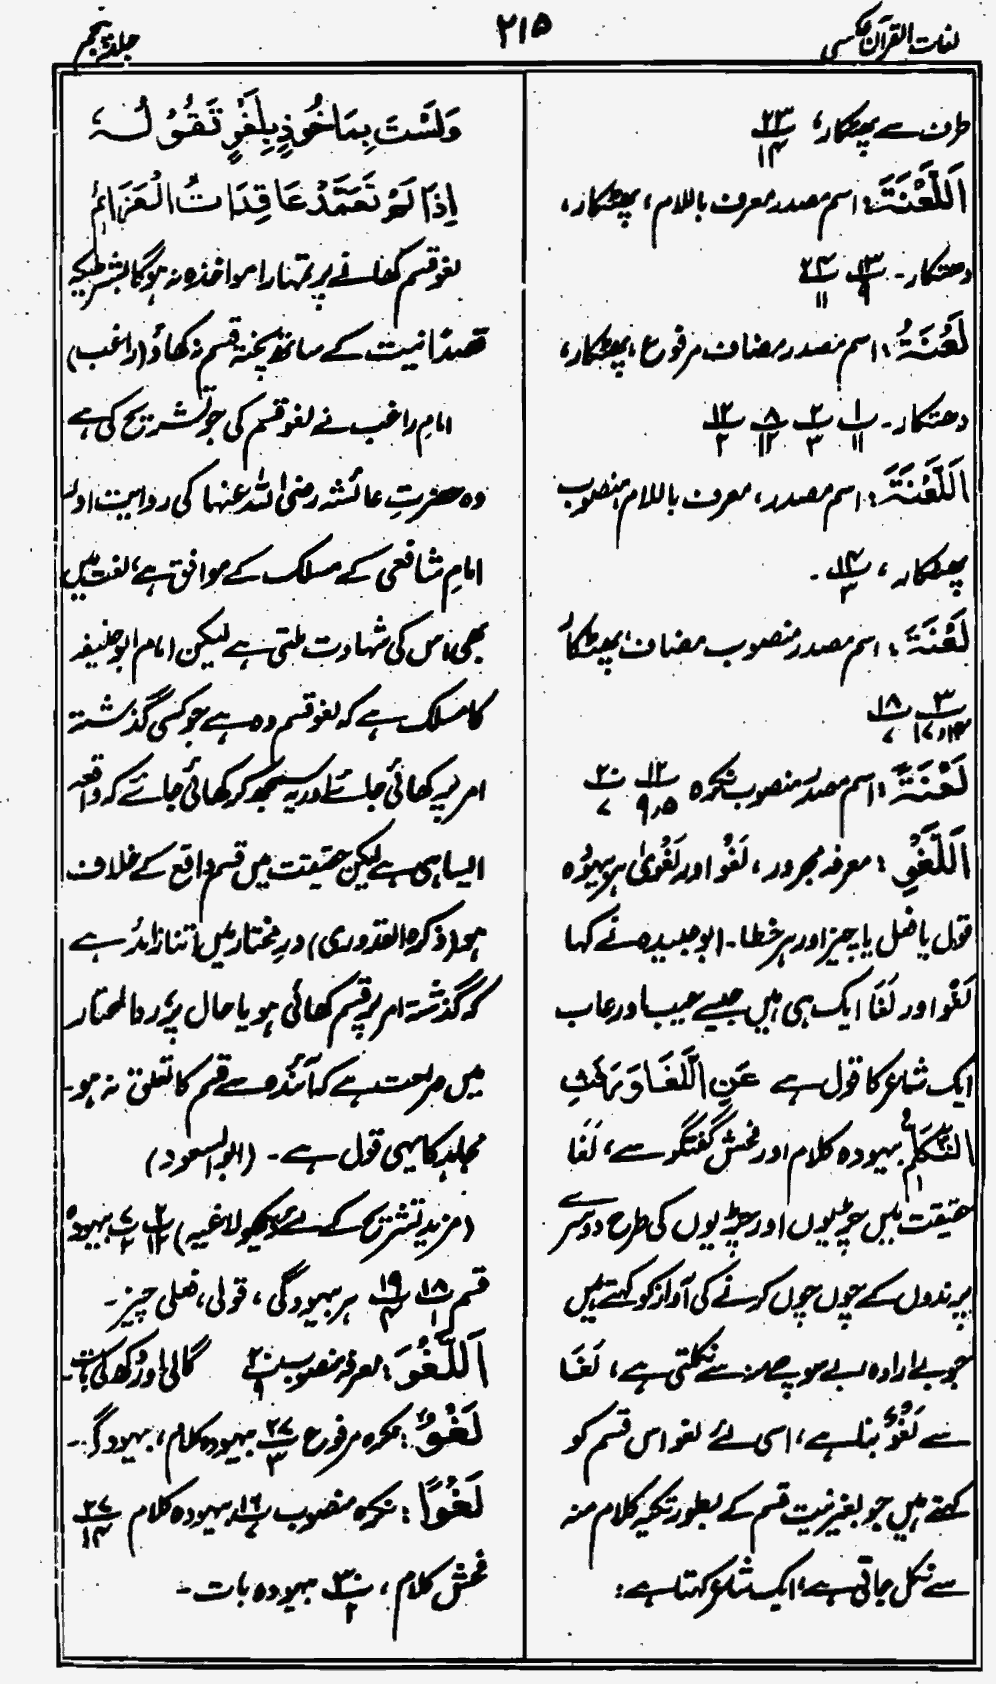 لغات القرآن عکسی
۲۱۵
جلد پنجم
طرف سے پھٹکار، ۲۳/۱۴
اَللَّعْنَةَ: اسم مصدر معرف باللام، پھٹکار،
دھتکار۔ ۱۳/۹ ۲۴/۱۱
لَعْنَةُ: اسم مصدر مضاف مرفوع، پھٹکار،
دھتکار۔ ۱/۱۱ ۲/۳ ۸/۱۲ ۱۲/۲
اَللَّعْنَةَ: اسم مصدر، معرف باللام منصوب
پھٹکار، ۱۴/۳۔
لَعْنَةَ: اسم مصدر منصوب مضاف پھٹکار
۳/۱۴،۱۷ ۱۸/۷
لَعْنَةً: اسم مصدر منصوب نکرہ ۱۲/۹،۵ ۲۰/۷
اَللَّغْوِ: معرفہ مجرور، لَغْو اور لَغْویٰ ہر بیہودہ
قول یا فعل یا چیز اور ہر خطا۔ ابو عبیدہ نے کہا
لَغْو اور لَغَا ایک ہی ہیں جیسے عیب اور عاب
ایک شاعر کا قول ہے عَنِ اللَّغَا وَرَفَثِ
التَّكَلُّمِ بیہودہ کلام اور فحش گفتگو سے، لَغَا
حقیقت میں چڑیوں اور چڑیوں کی طرح دوسرے
پرندوں کے چوں چوں کرنے کی آواز کو کہتے ہیں
جو بے ارادہ بے سوچے منہ سے نکلتی ہے، لَغَا
سے لَغْوٌ بنا ہے، اسی لئے لغو اس قسم کو
کہتے ہیں جو بغیر نیت قسم کے بطور تکیہ کلام منہ
سے نکل جاتی ہے، ایک شاعر کہتا ہے:
وَلَسْتَ بِمَاخُوذٍ بِلَغْوٍ تَقُوْلُهٗ
اِذَا لَمْ تَعَمَّدْ عَاقِدَاتُ الْعَزَائِمِ
لغو قسم کھانے پر تمہارا مواخذہ نہ ہوگا بشرطیکہ
قصدًا نیت کے ساتھ پختہ قسم نہ کھاؤ (راغب)
امام راغب نے لغو قسم کی جو تشریح کی ہے
وہ حضرتِ عائشہ رضی اللہ عنہا کی روایت اور
امامِ شافعی کے مسلک کے موافق ہے، لغت میں
بھی اس کی شہادت ملتی ہے لیکن امام ابو حنیفہ
کا مسلک ہے کہ لغو قسم وہ ہے جو کسی گذشتہ
امر پر کھائی جائے اور یہ سمجھ کر کھائی جائے کہ واقعہ
ایسا ہی ہے لیکن حقیقت میں قسم واقع کے خلاف
ہو (ذکرہ القدوری) درِ مختار میں اتنا زائد ہے
کہ گذشتہ امر پر قسم کھائی ہو یا حال پر، رد المحتار
میں صراحت ہے کہ آئندہ سے قسم کا تعلق نہ ہو۔
مجاہد کا یہی قول ہے۔ (ابو السعود)
(مزید تشریح کے لئے دیکھو لاغیہ) ۲/۱۲ ۷/۲ بیہودہ
قسم ۱۸/۱ ۱۹/۴ ہر بیہودگی، قولی، فعلی چیز۔
اَللَّغْوَ: معرفہ منصوب ۲۰/۹ گالی اور دکھ کی بات۔
لَغْوٌ: نکرہ مرفوع ۲۷/۳ بیہودہ کلام، بیہودگی۔
لَغْوًا: نکرہ منصوب ۱۶ بیہودہ کلام ۲۷/۱۴
فحش کلام، ۳۰/۲ بیہودہ بات۔